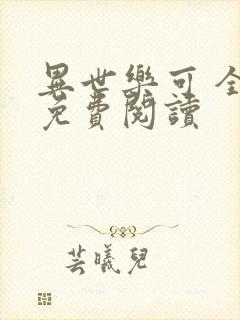 異世樂可 全
免費閱讀
芸曦兒